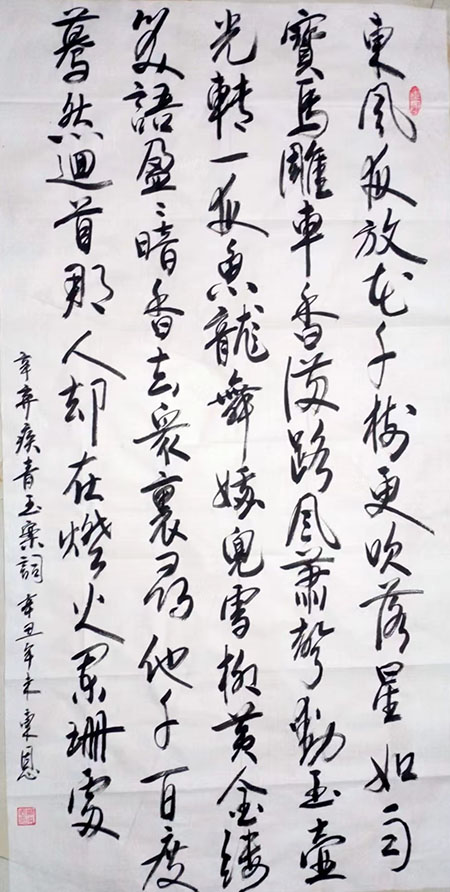 東風夜放花千樹更吹落星如雨
寳馬雕車香满路風蕭聲動玉壺
光轉一夜魚龍舞娥兒雪柳黄金缕
笑語盈〻暗香去衆裏尋他千百度
蓦然迴首那人却在燈火闌珊處
辛弃疾青玉案詞 辛丑年末東恩